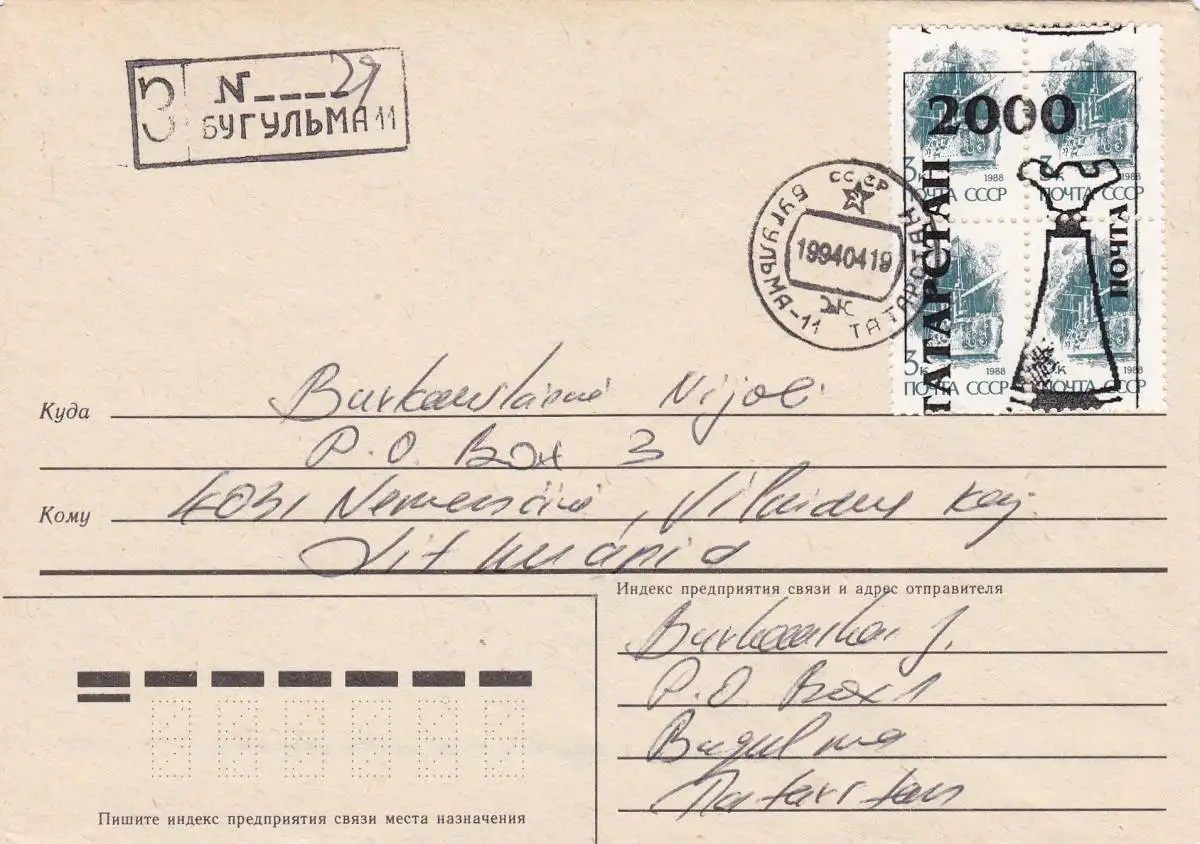 З
N____29
БУГУЛЬМА 11
2000
ТАТАРСТАН
ПОЧТА
3к 1988
ПОЧТА СССР
3к 1988
ПОЧТА СССР
3к 1988
ПОЧТА СССР
3к 1988
ПОЧТА СССР
СССР
БУГУЛЬМА-11
19940419
Ж
Куда
Nijol
P.O. Box 3
Кому
4031
Индекс предприятия связи и адрес отправителя
J.
P.O. Box 1
Bugulma
Tatarstan
Пишите индекс предприятия связи места назначения